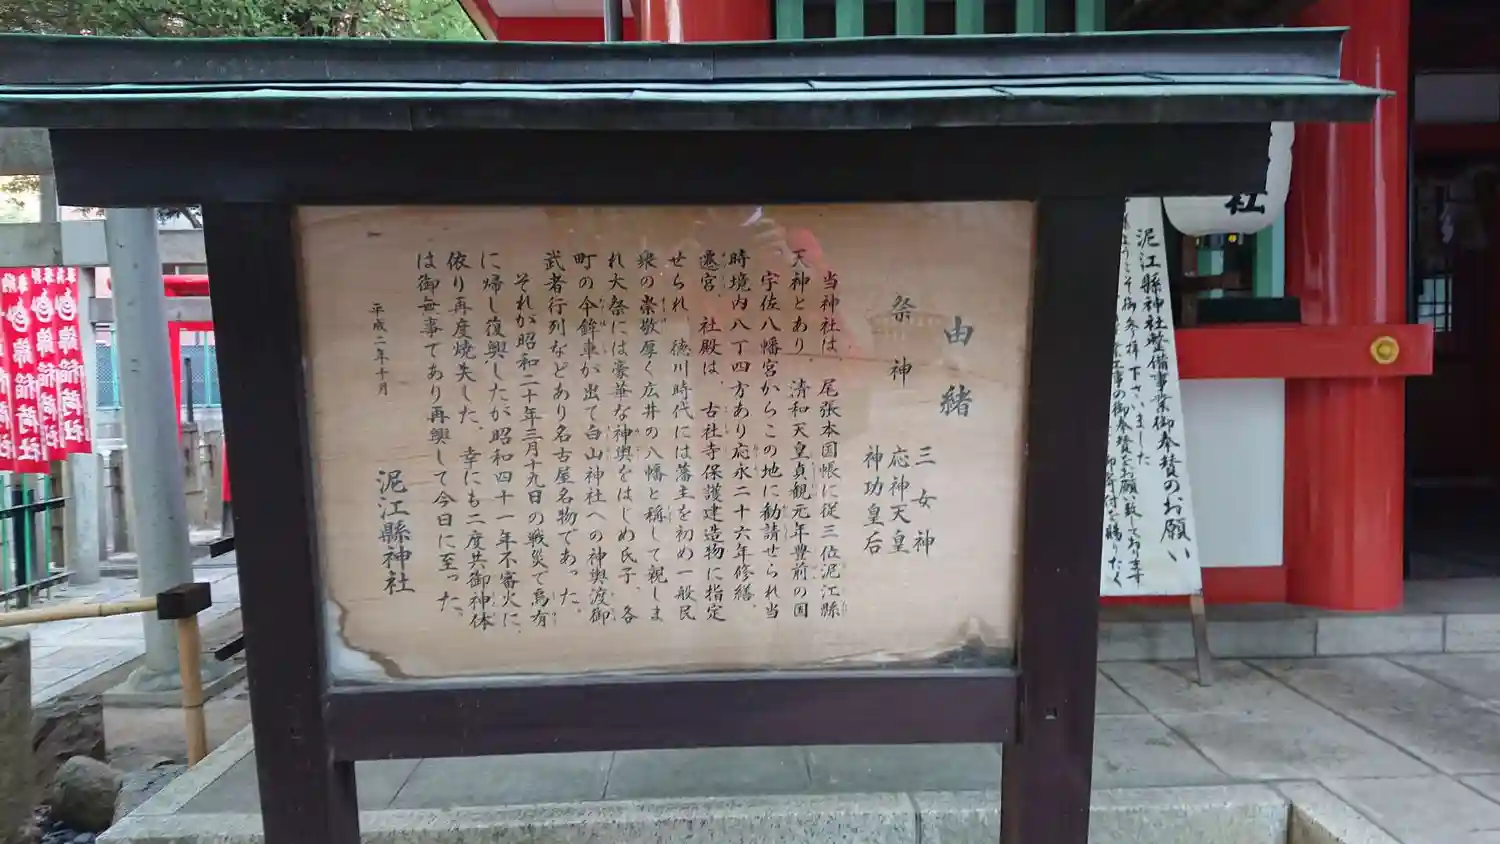 由緒
祭神
三女神
応神天皇
神功皇后
当神社は、尾張本国帳に従三位泥江縣
天神とあり、清和天皇貞観元年豊前の国
宇佐八幡宮からこの地に勧請せられ当
時境内八丁四方あり応永二十六年修繕、
遷宮、社殿は、古社寺保護建造物に指定
せられ、徳川時代には藩主を初め一般民
衆の崇敬厚く広井の八幡と称して親しま
れ大祭には豪華な神輿をはじめ氏子、各
町の傘鉾車が出て白山神社への神輿渡御
武者行列などあり名古屋名物であった。
それが昭和二十年三月十九日の戦災で烏有
に帰し復興したが昭和四十一年不審火に、
依り再度焼失した。幸にも二度共御神体
は御無事であり再興して今日に至った。
平成二年十月
泥江縣神社
泥江縣神社整備事業御奉賛のお願い
ようこそ御参拝下さいました
の御奉賛をお願い致しております
御寄付を賜りたく
社
稲荷社
稲荷社
稲荷社